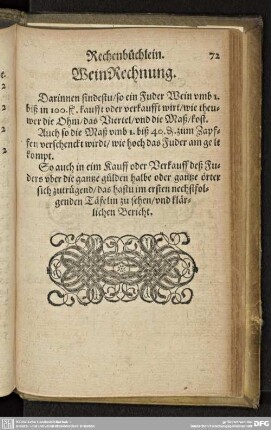 Rechenbüchlein. 72
WeinRechnung.
Darinnen findestu/so ein Fuder Wein vmb 1.
biß in 100. fl. kaufft oder verkaufft wirt/wie theu-
wer die Ohm/das Viertel/vnd die Maß/kost.
Auch so die Maß vmb 1. biß 40. ₰. zum Zapf-
fen verschenckt wirdt/wie hoch das Fuder am gelt
kompt.
So auch in eim Kauff oder Verkauff deß Fu-
ders vber die gantze gülden halbe oder gantze örter
sich zutrügend/das hastu im ersten nechstfol-
genden Täfelin zu sehen/vnd klär-
lichen Bericht.